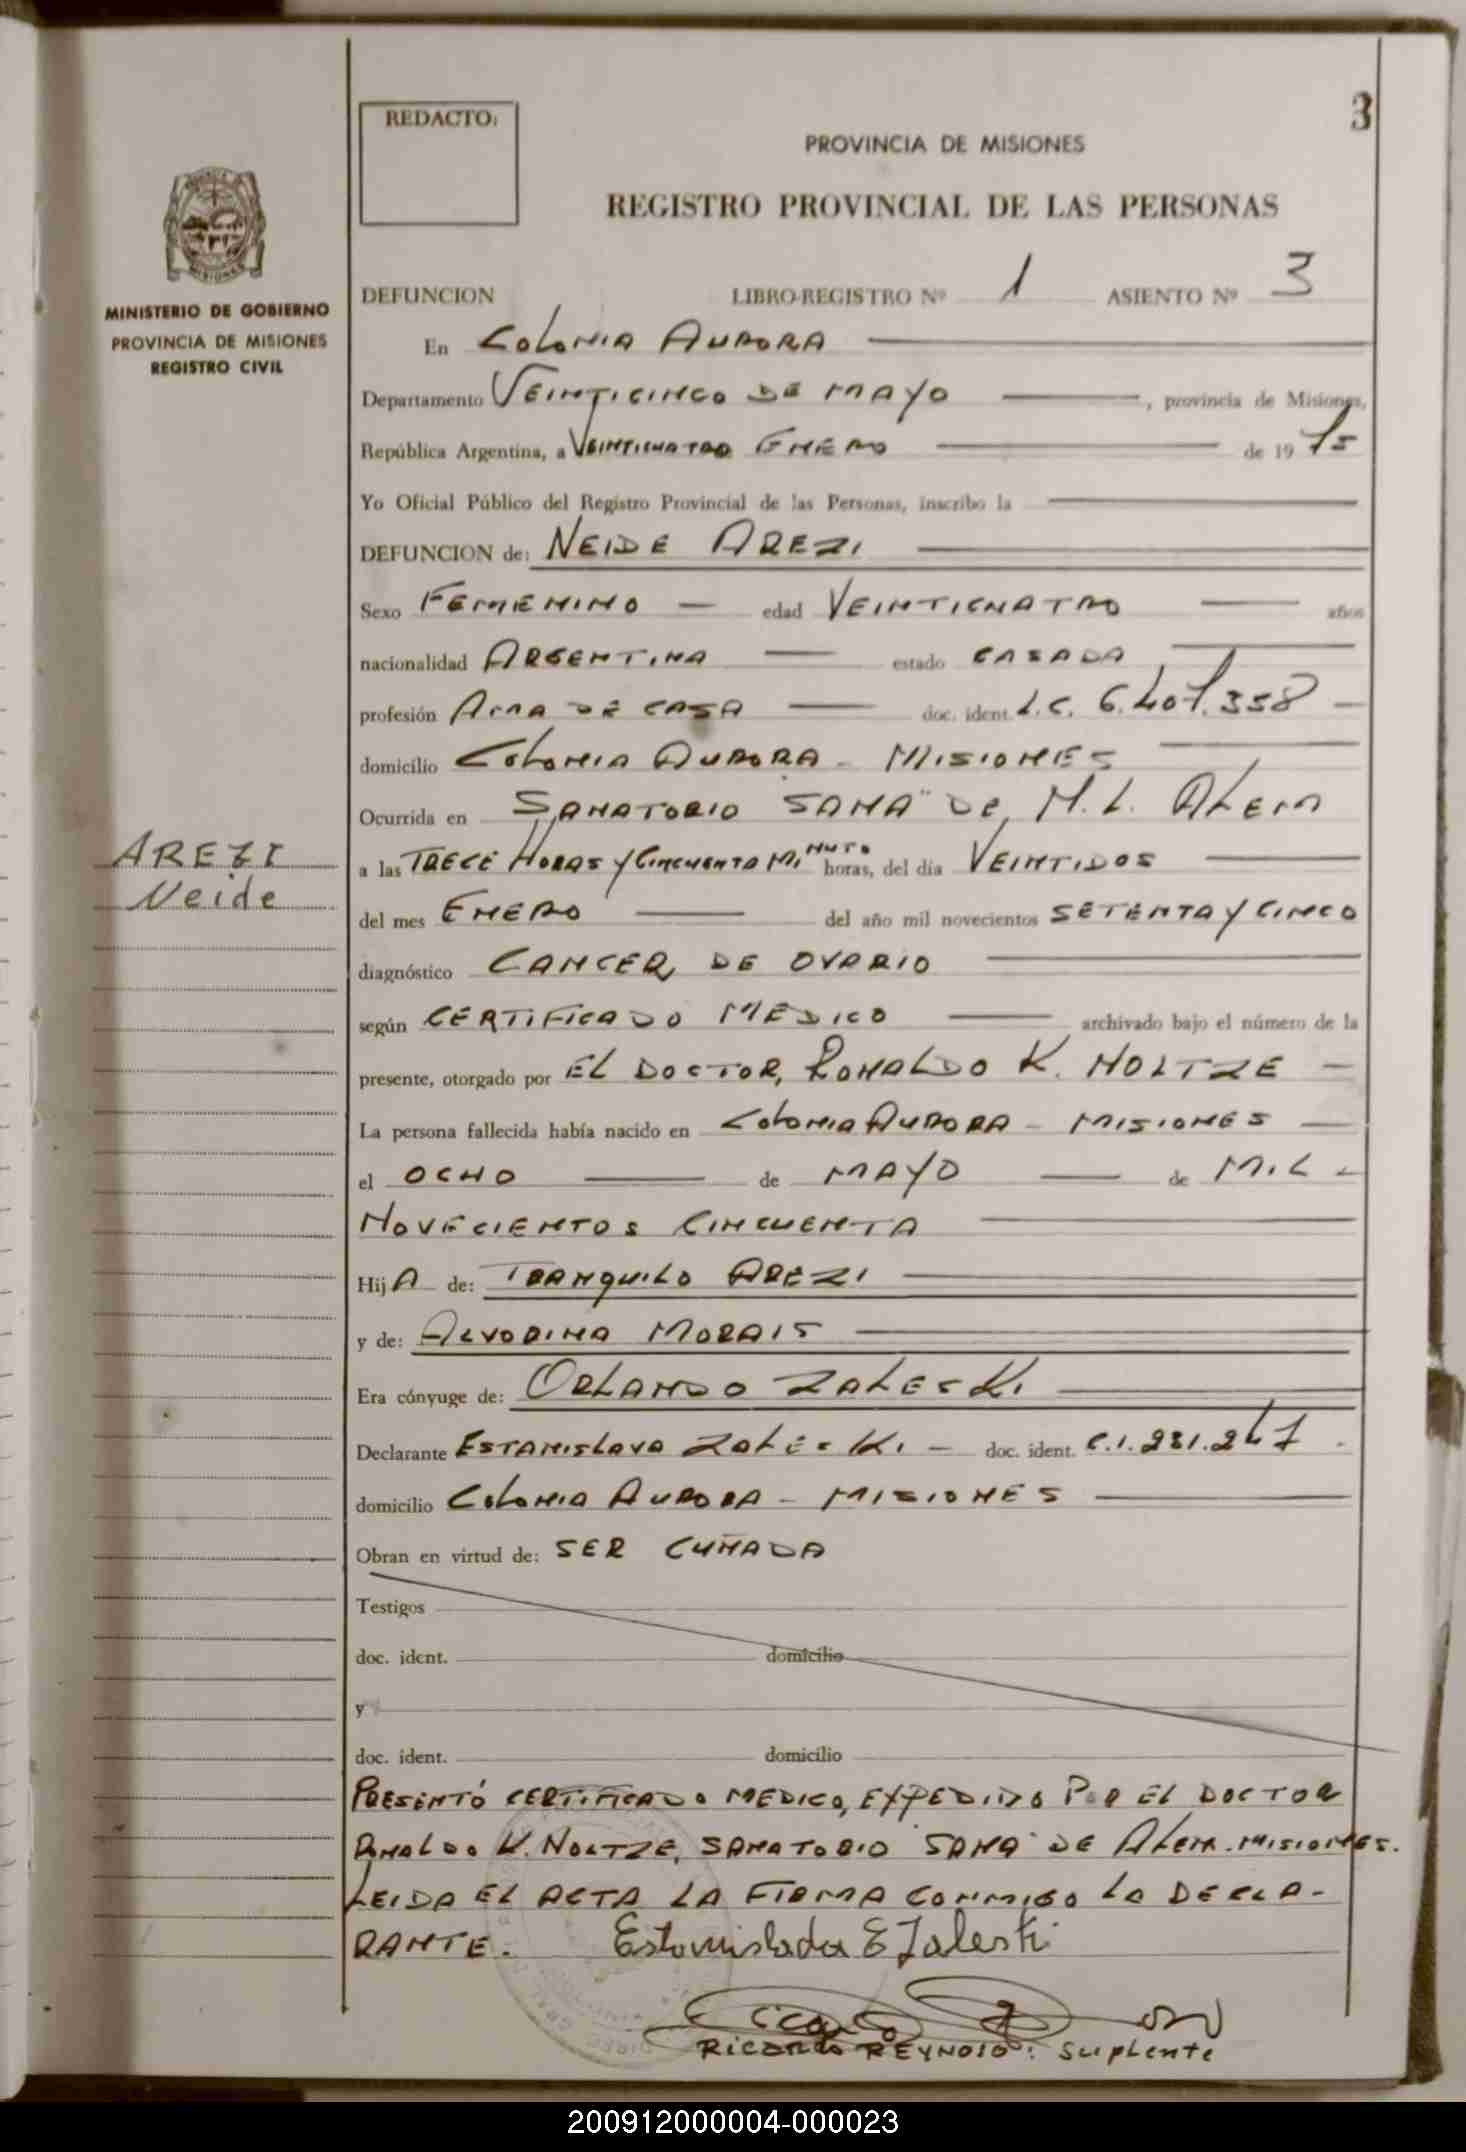 3
REDACTO:
PROVINCIA DE MISIONES
REGISTRO PROVINCIAL DE LAS PERSONAS
MISIONES
MINISTERIO DE GOBIERNO
PROVINCIA DE MISIONES
REGISTRO CIVIL
DEFUNCION LIBRO-REGISTRO Nº 1 ASIENTO Nº 3
En COLONIA AURORA
Departamento VEINTICINCO DE MAYO, provincia de Misiones,
República Argentina, a VEINTICUATRO ENERO de 1975
Yo Oficial Público del Registro Provincial de las Personas, inscribo la
DEFUNCION de: NEIDE AREZI
Sexo FEMENINO edad VEINTICUATRO años
nacionalidad ARGENTINA estado CASADA
profesión AMA DE CASA doc. ident. L.C. 6.407.358
domicilio COLONIA AURORA - MISIONES
Ocurrida en SANATORIO "SAMA" DE M. L. ALEM
AREZI
Neide
a las TRECE HORAS Y CINCUENTA MINUTO horas, del día VEINTIDOS
del mes ENERO del año mil novecientos SETENTA Y CINCO
diagnóstico CANCER DE OVARIO
según CERTIFICADO MEDICO archivado bajo el número de la
presente, otorgado por EL DOCTOR, RONALDO K. NOLTZE
La persona fallecida había nacido en COLONIA AURORA - MISIONES
el OCHO de MAYO de MIL
NOVECIENTOS CINCUENTA
HijA de: TRANQUILO AREZI
y de: ALVORINA MORAIS
Era cónyuge de: ORLANDO ZALESKI
Declarante ESTANISLAVA ZALESKI - doc. ident. C.I. 231.247
domicilio COLONIA AURORA - MISIONES
Obran en virtud de: SER CUÑADA
Testigos
doc. ident. domicilio
y
doc. ident. domicilio
PRESENTÓ CERTIFICADO MEDICO, EXPEDIDO POR EL DOCTOR
RONALDO K. NOLTZE, SANATORIO "SAMA" DE ALEM. MISIONES.
LEIDA EL ACTA LA FIRMA CONMIGO LA DECLA-
RANTE. Estanislada E Zaleski
RICARDO REYNOSO: SUPLENTE
200912000004-000023